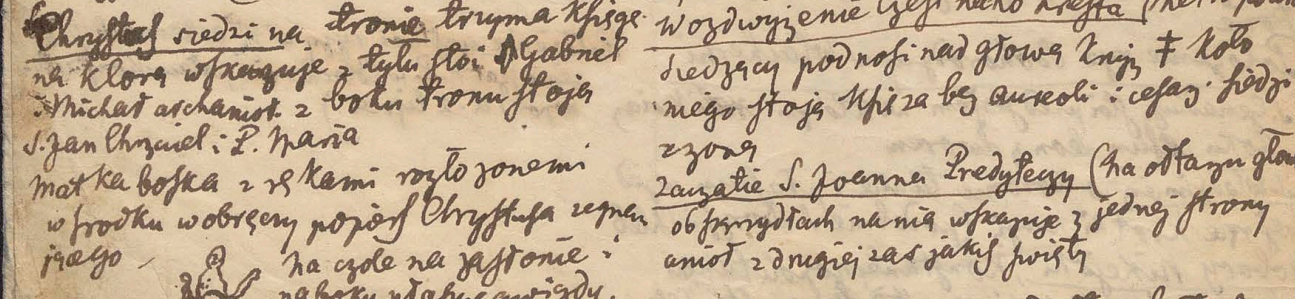 Chrystus siedzi na tronie trzyma księgę
na którą wskazuje z tyłu stoi Gabriel
i Michał archanioł. z boku tronu stoją
S. Jan Chrzciel i P. Maria
Matka boska z rękami rozłożonemi
w środku w obręczy popiers Chrystusa żegnają
jącego
na czole na zasłonie i
na boku
Wozdwyżenie
siedzący podnosi nad głową krzyż ‡ koło
niego stoją księża bez aureoli i cesarz siedzi
z żoną
zaczatie S. Joanna Predyteczy (na ołtarzu
ob skrzydłach na nią wskazuje z jednej strony
anioł z drugiej zaś jakiś święty